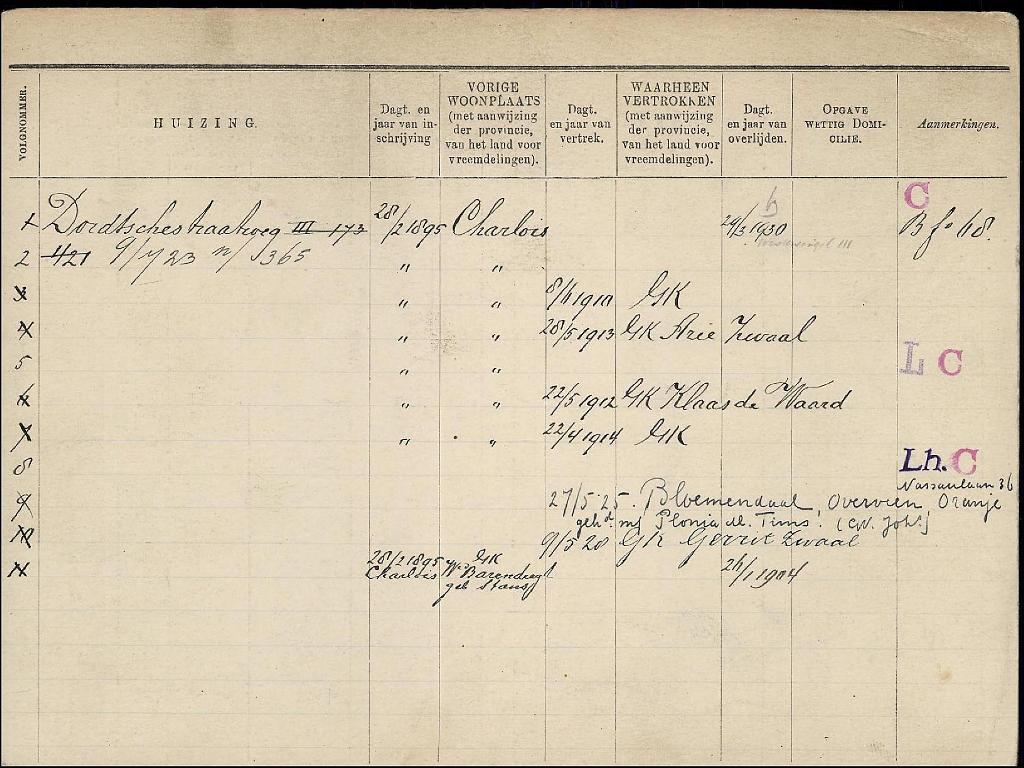 VOLGNOMMER.
HUIZING.
Dagt. en jaar van in-schrijving
VORIGE WOONPLAATS (met aanwijzing der provincie, van het land voor vreemdelingen).
Dagt. en jaar van vertrek.
WAARHEEN VERTROKKEN (met aanwijzing der provincie, van het land voor vreemdelingen).
Dagt. en jaar van overlijden.
OPGAVE WETTIG DOMI-CILIE.
Aanmerkingen.
C
1 Dordtschestraatweg III 173 28/2 1895 Charlois 24/3 1930 B fo 68.
2 421 9/7 23 n/ 365 " "
3 " " 8/11 1910 GK
4 " " 28/5 1913 GK Arie Zwaal
5 " " L C
6 " " 22/5 1912 GK Klaas de Waard
7 " " 22/4 1914 GK
8 Lh. C
Nassaulaan 36
9 27/5 '25. Bloemendaal, Overveen, Oranje
geh d. m/ Plonia d. Tims. (C.W. Joh s)
10 9/5 28 GK Gerrit Zwaal
11 28/2 1895 GK 26/1 1904
Charlois We Barendregt
geb Stans